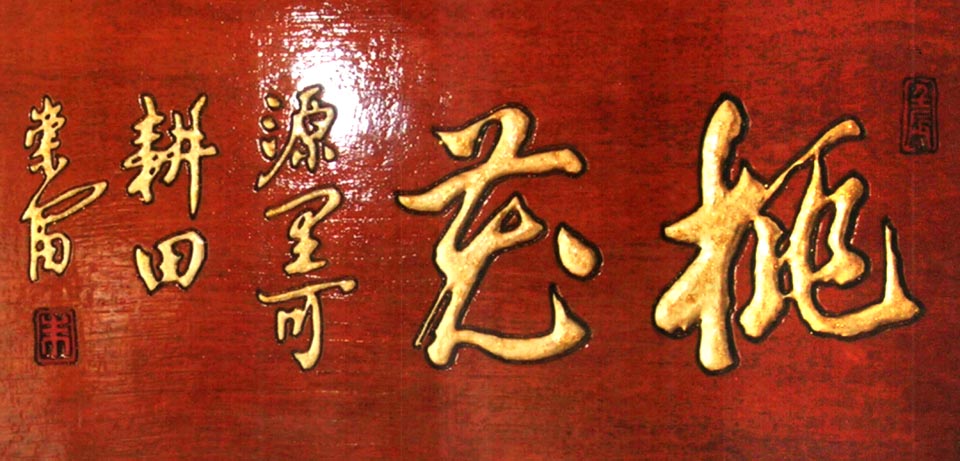 桃花
源里可
耕田